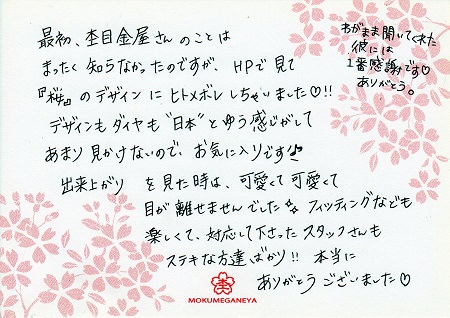 最初、杢目金屋さんのことは
まったく知らなかったのですが、HPで見て
『桜』のデザインにヒトメボレしちゃいました♡!!
デザインもダイヤも“日本”とゆう感じがして
あまり見かけないので、お気に入りです♪
出来上がりを見た時は、可愛くて可愛くて
目が離せませんでした。フィッティングなども
楽しくて、対応して下さったスタッフさんも
ステキな方達ばかり!!本当に
ありがとうございました♡
わがまま聞いてくれた
彼には
1番感謝です♡
ありがとう。
MOKUMEGANEYA